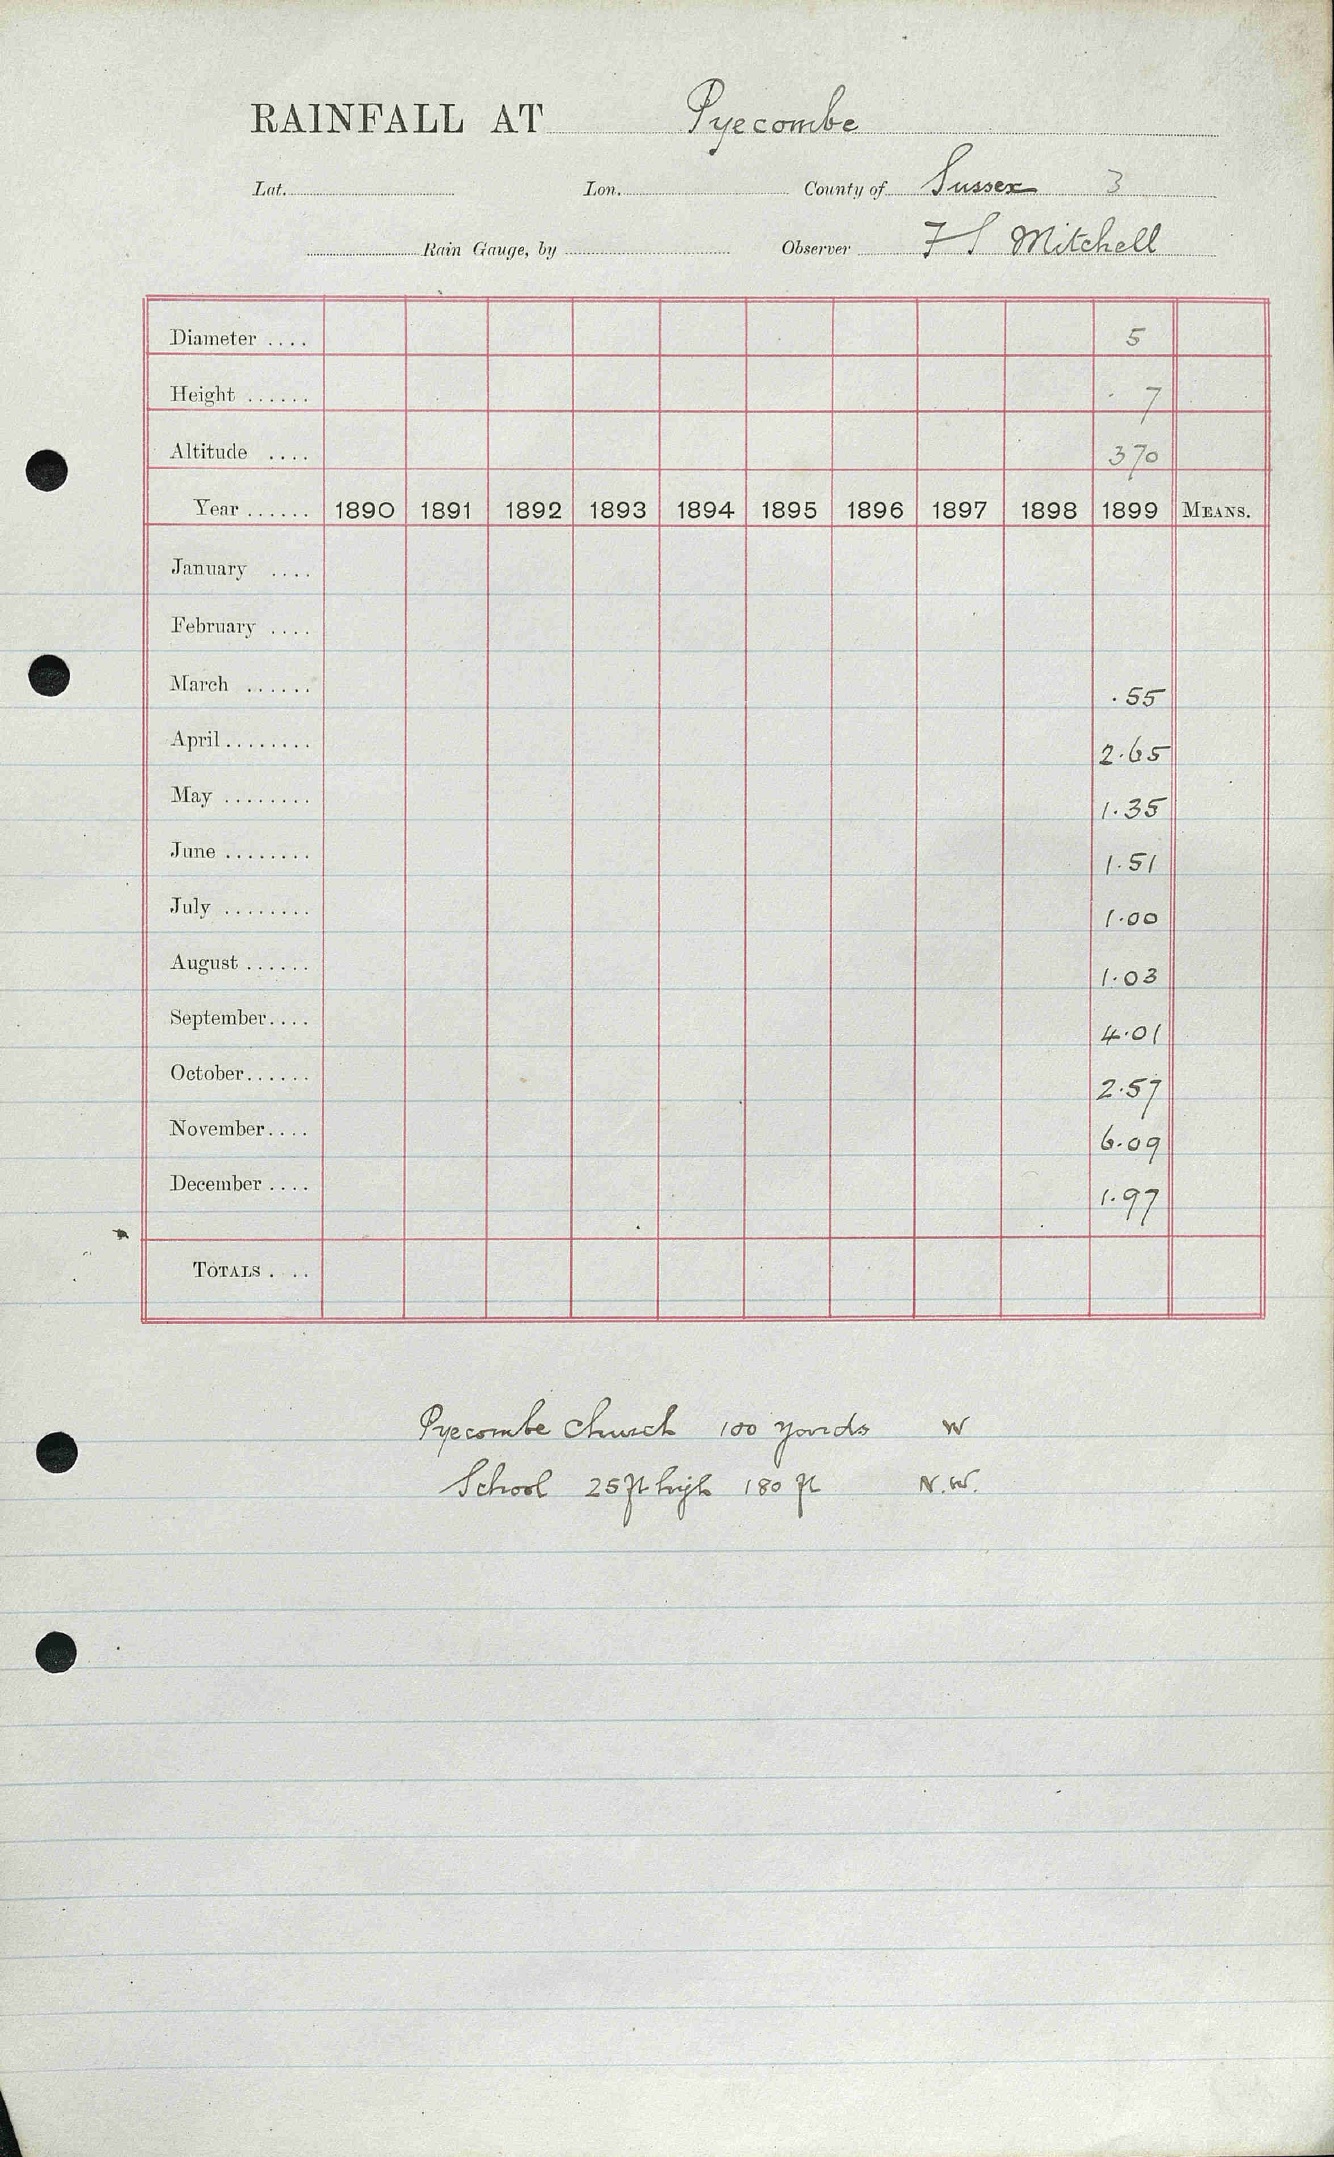 RAINFALL AT Pyecombe
Lat. Lon. County of Sussex 3
Rain Gauge, by Observer F S Mitchell
Diameter .... 5
Height ...... 7
Altitude .... 370
Year ...... 1890 1891 1892 1893 1894 1895 1896 1897 1898 1899 MEANS.
January ....
February ....
March ...... .55
April ........ 2.65
May ........ 1.35
June ........ 1.51
July ........ 1.00
August ...... 1.03
September.... 4.01
October...... 2.57
November.... 6.09
December .... 1.97
TOTALS . ..
Pyecombe Church 100 yards W
School 25 ft high 180 ft N.W.